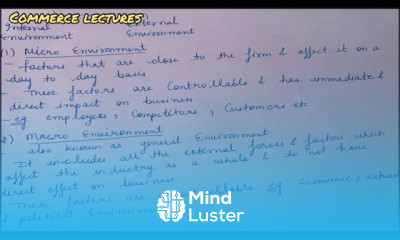 COMMERCE LECTURES
Internal External
Environment Environment
(1) Micro Environment
- factors that are close to the firm & affect it on a
day to day basis
- These factors are Controllable & has immediate &
direct impact on business
- eg employees, Competitors, Customers etc
2) Macro Environment
also known as general Environment
It includes all the external forces & factors which
affect the industry as a whole & do not have
direct effect on business
These factors are eg economic,
& political
Mind
Luster